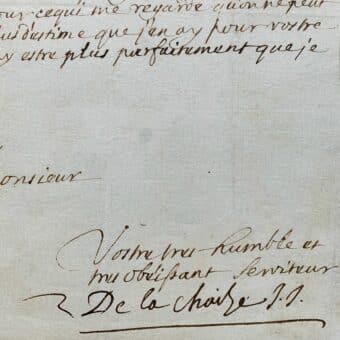 our ce qui me regarde qu'on ne peut
lus d'estime que j'en ay pour vostre
y estre plus parfaitement que je
onsieur
Vostre tres humble et
tres obeissant serviteur
De la Chaize J.J.